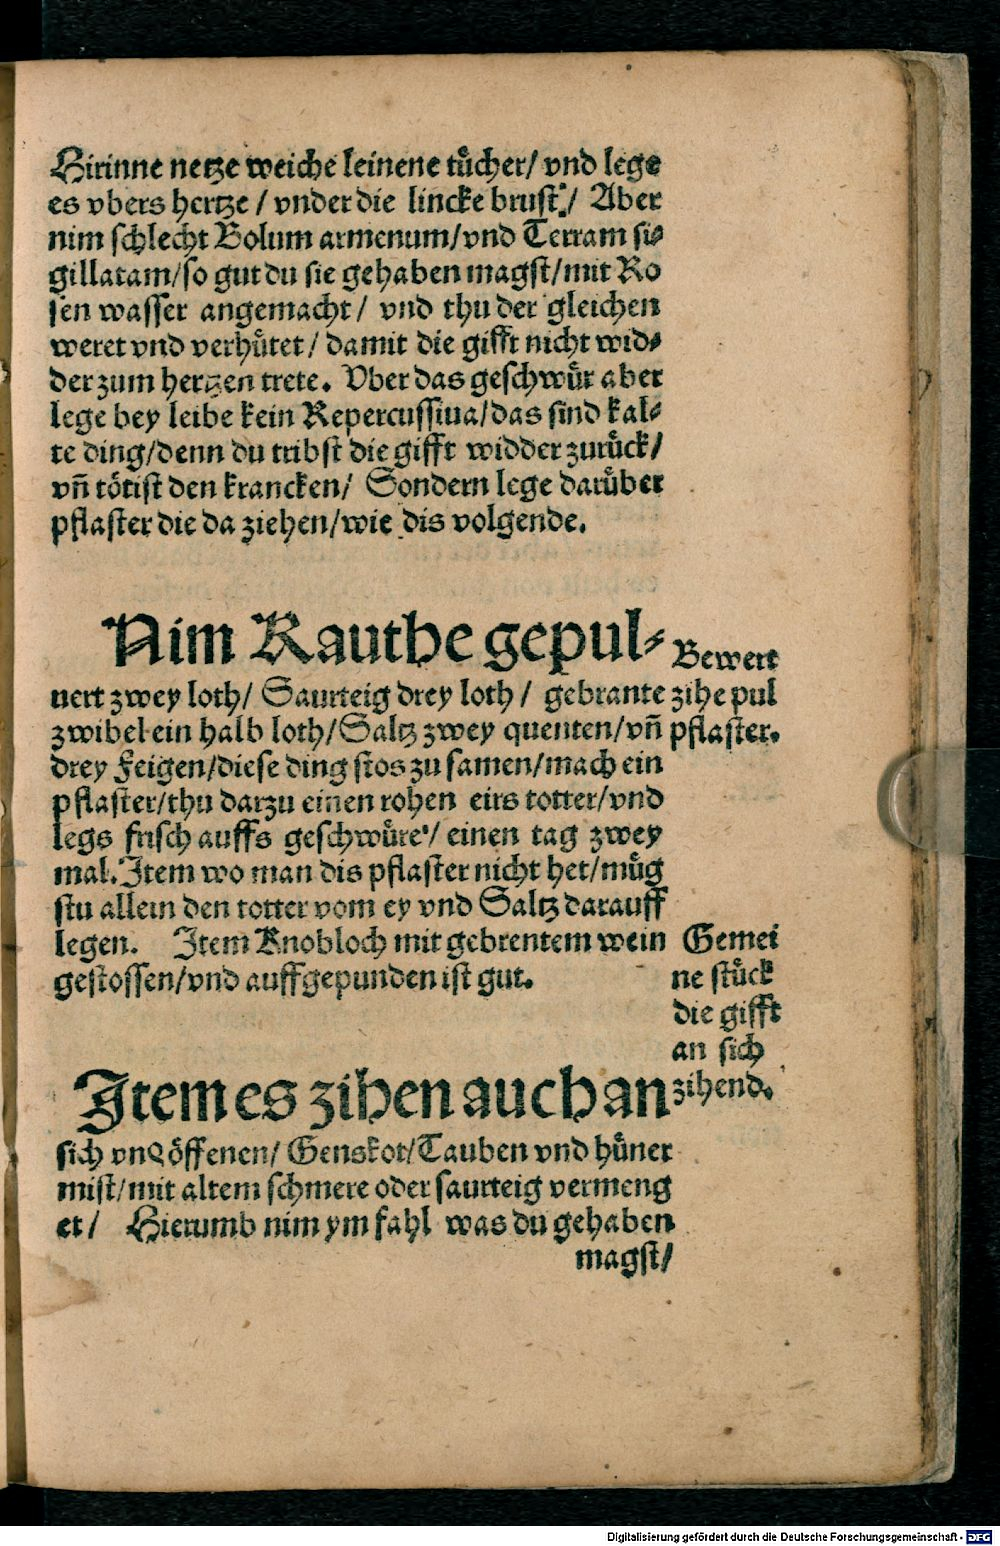 Hirinne netze weiche leinene tůcher/ vnd lege
es vbers hertze / vnder die lincke brust / Aber
nim schlecht Bolum armenum/vnd Terram si⸗
gillatam/so gut du sie gehaben magst/mit Ro
sen wasser angemacht / vnd thu der gleichen
weret vnd verhůtet / damit die gifft nicht wid⸗
der zum hertzen trete. Vber das geschwůr aber
lege bey leibe kein Repercussiua/das sind kal⸗
te ding/denn du tribst die gifft widder zurůck/
vñ tötist den krancken/ Sondern lege darůber
pflaster die da ziehen/wie dis volgende.
Nim Rauthe gepul⸗
uert zwey loth/ Saurteig drey loth / gebrante
zwibel ein halb loth/Saltz zwey quenten/vñ
drey Feigen/diese ding stos zu samen/mach ein
pflaster/thu darzu einen rohen eirs totter/vnd
legs frisch auffs geschwůre/ einen tag zwey
mal. Item wo man dis pflaster nicht het/můg
stu allein den totter vom ey vnd Saltz darauff
legen. Item Knobloch mit gebrentem wein
gestossen/vnd auffgepunden ist gut.
Bewert
zihe pul
pflaster.
Gemei
ne stůck
die gifft
an sich
zihend.
Item es zihen auch an
sich vnd öffenen/ Genskot/Tauben vnd hůner
mist/mit altem schmere oder saurteig vermeng
et / Hierumb nim ym fahl was du gehaben
magst/
Digitalisierung gefördert durch die Deutsche Forschungsgemeinschaft - DFG